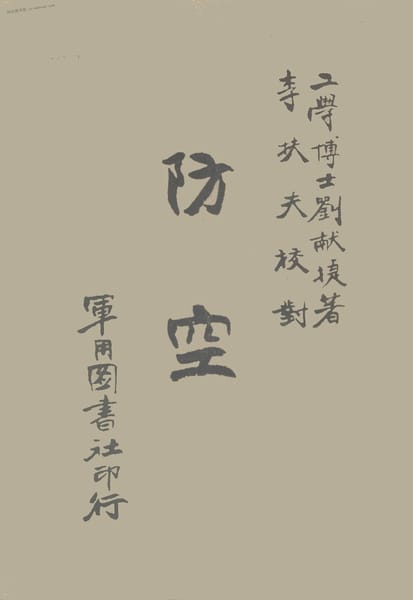 工學博士劉献捷著
李扶夫校對
防空
軍用圖書社印行